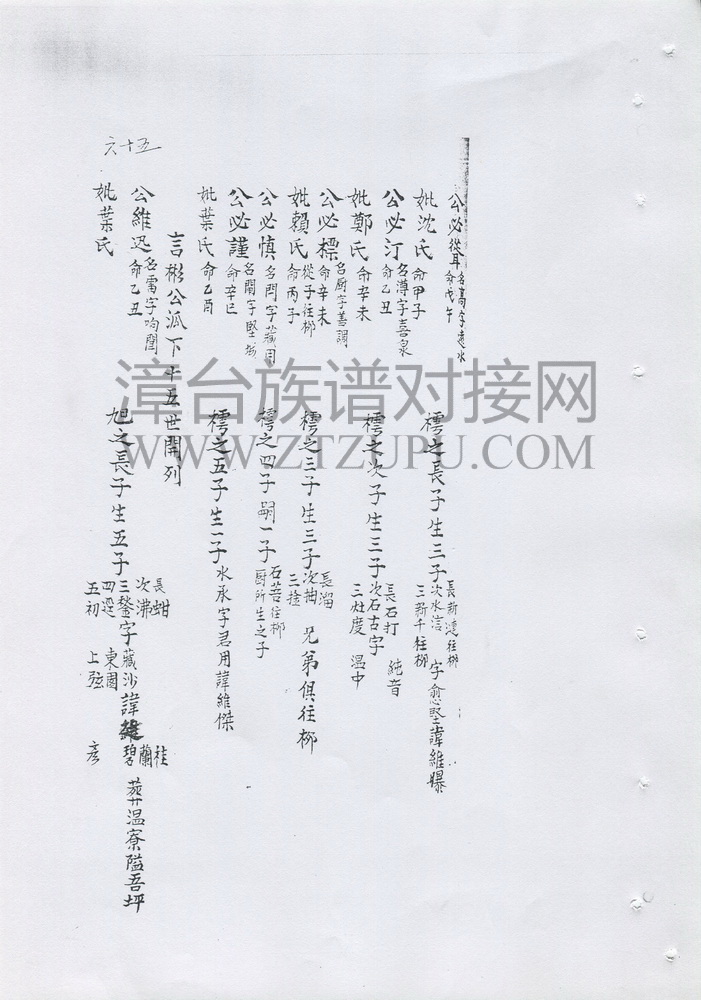 六十五
公必從耳 名萬字連水 命戊午 樗之長子生三子 次水 字 愈堅諱維曝 三新千往柳
妣沈氏 命甲子
公必汀 名潯字喜泉 命乙丑 樗之次子生三子 長石打 純音 次石古字 三灶度 温中
妣鄭氏 命辛未
公必標 名厨字善調 命辛未 樗之三子生三子 長溜 次抽 三捨 兄弟俱往柳
妣賴氏 從子往柳 命丙子
公必慎 名閂字藏用 樗之四子嗣一子 石菩往柳 厨所生之子
公必謹 名開字堅 命辛巳 樗之五子生一子 水承字君用諱維傑
妣葉氏 命乙酉
言彬公派下十五世開列
公維迅 名雷字响閏 命乙丑 旭之長子生五子 長蚶 次沸 三鍪字藏沙諱 四選 東園 五初 上弦 桂 蘭 碧 彦 葬温寮隘吾坪
妣葉氏
漳台族谱对接网
WWW.ZTZUPU.COM